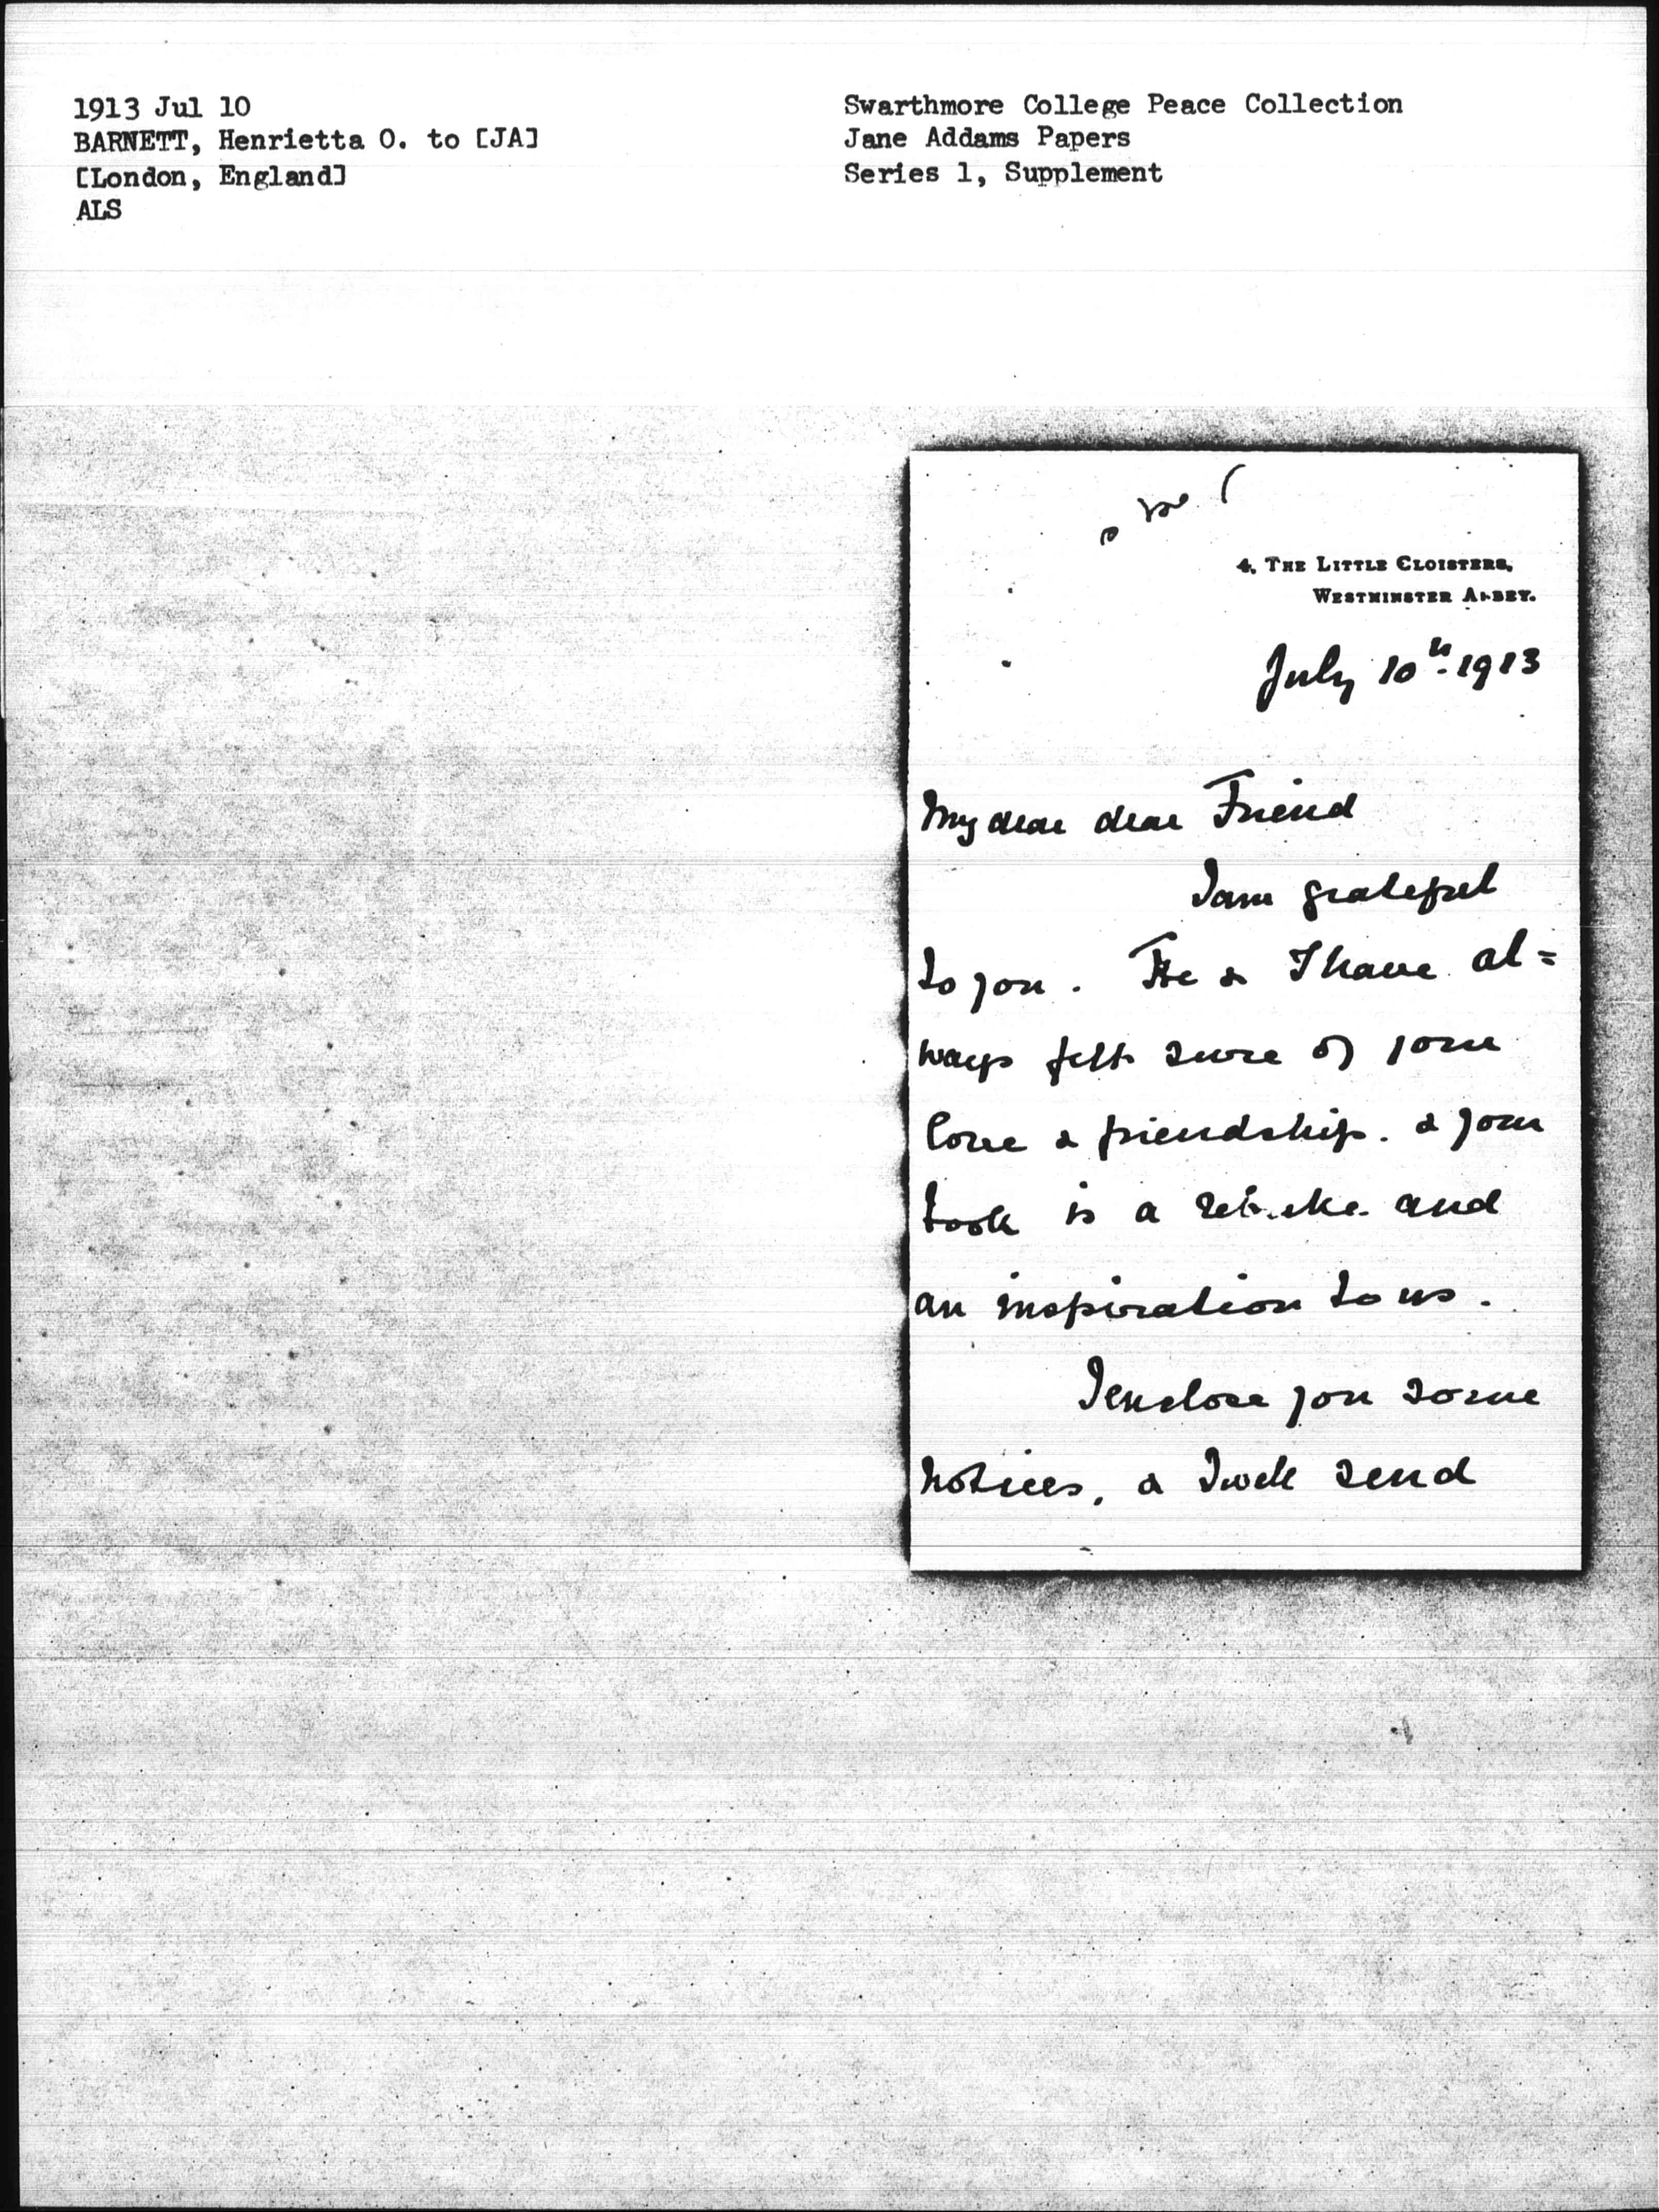 1913 Jul 10
BARNETT, Henrietta O. to [JA]
[London, England]
ALS
Swarthmore College Peace Collection
Jane Addams Papers
Series 1, Supplement
4, THE LITTLE CLOISTERS,
WESTMINSTER ABBEY.
July 10th. 1913
My dear dear Friend
I am grateful
to you. He & I have al=
ways felt sure of your
love & friendship. & your
book is a rebuke and
an inspiration to us.
I enclose you some
notices, & I will send